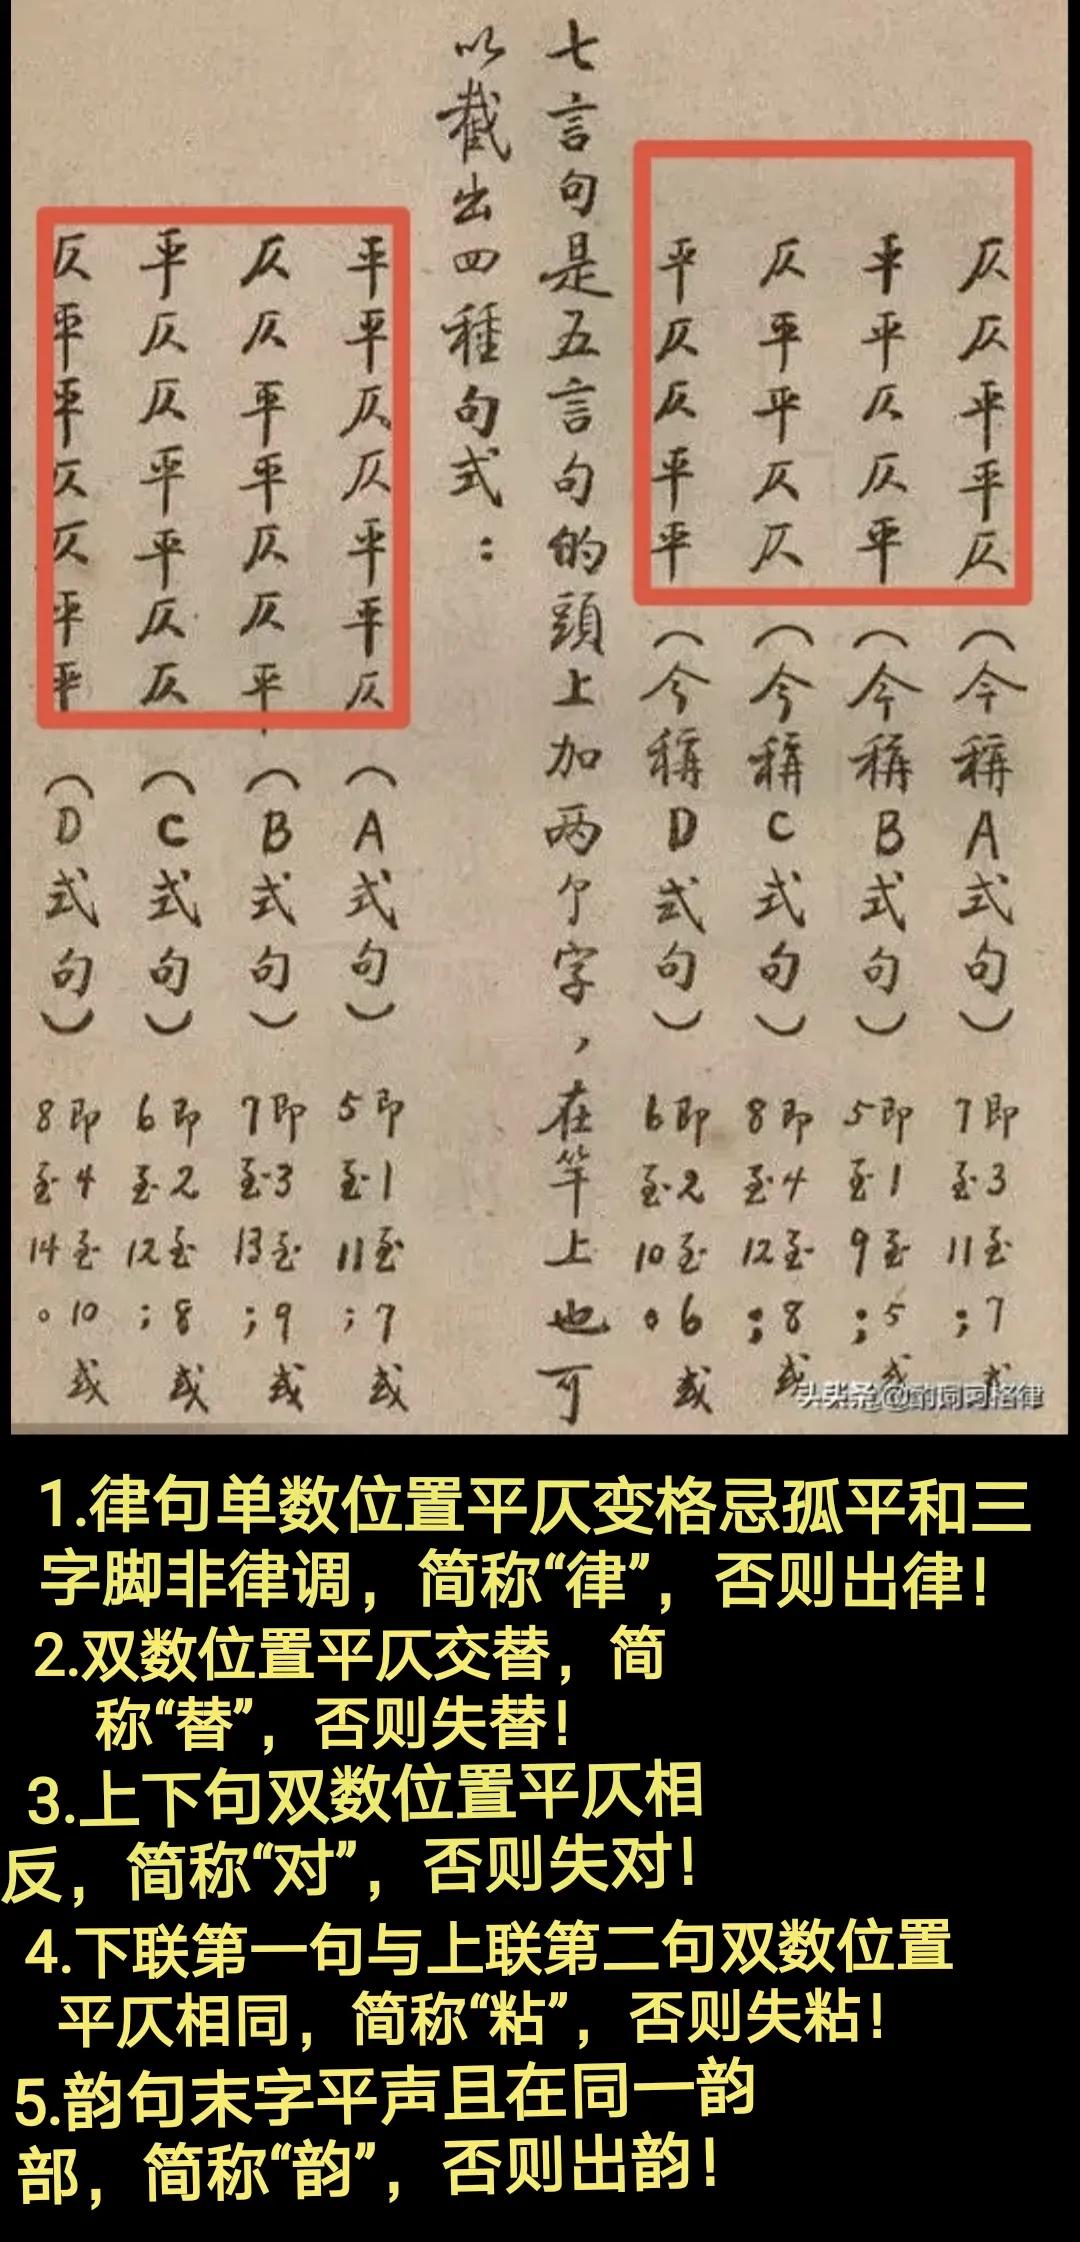 仄仄平平仄（今稱A式句）即3至7或7至11；
平平仄仄平（今稱B式句）即1至5或5至9；
仄平平仄仄（今稱C式句）即4至8或8至12；
平仄仄平平（今稱D式句）即2至6或6至10。
七言句是五言句的頭上加两个字，在竿上也可
以截出四種句式：
平平仄仄平平仄（A式句）即1至7或5至11；
仄仄平平仄仄平（B式句）即3至9或7至13；
平仄仄平平仄仄（C式句）即2至8或6至12；
仄平平仄仄平平（D式句）即4至10或8至14。
头条@酌同可格律
1.律句单数位置平仄变格忌孤平和三
字脚非律调，简称“律”，否则出律！
2.双数位置平仄交替，简
称“替”，否则失替！
3.上下句双数位置平仄相
反，简称“对”，否则失对！
4.下联第一句与上联第二句双数位置
平仄相同，简称“粘”，否则失粘！
5.韵句末字平声且在同一韵
部，简称“韵”，否则出韵！